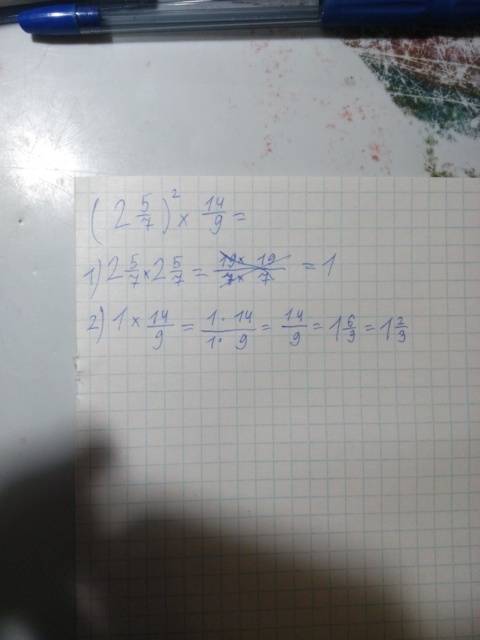 (2 5/7)² × 14/9 =
1) 2 5/7 × 2 5/7 = 19 × 19 / 7 × 7 = 1
2) 1 × 14/9 = 1 · 14 / 1 · 9 = 14/9 = 1 6/9 = 1 2/9